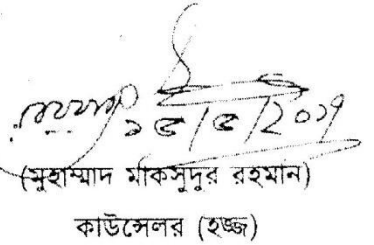 ১৫/৫/২০১৭
(মুহাম্মাদ মাকসুদুর রহমান)
কাউন্সেলর (হজ্জ)